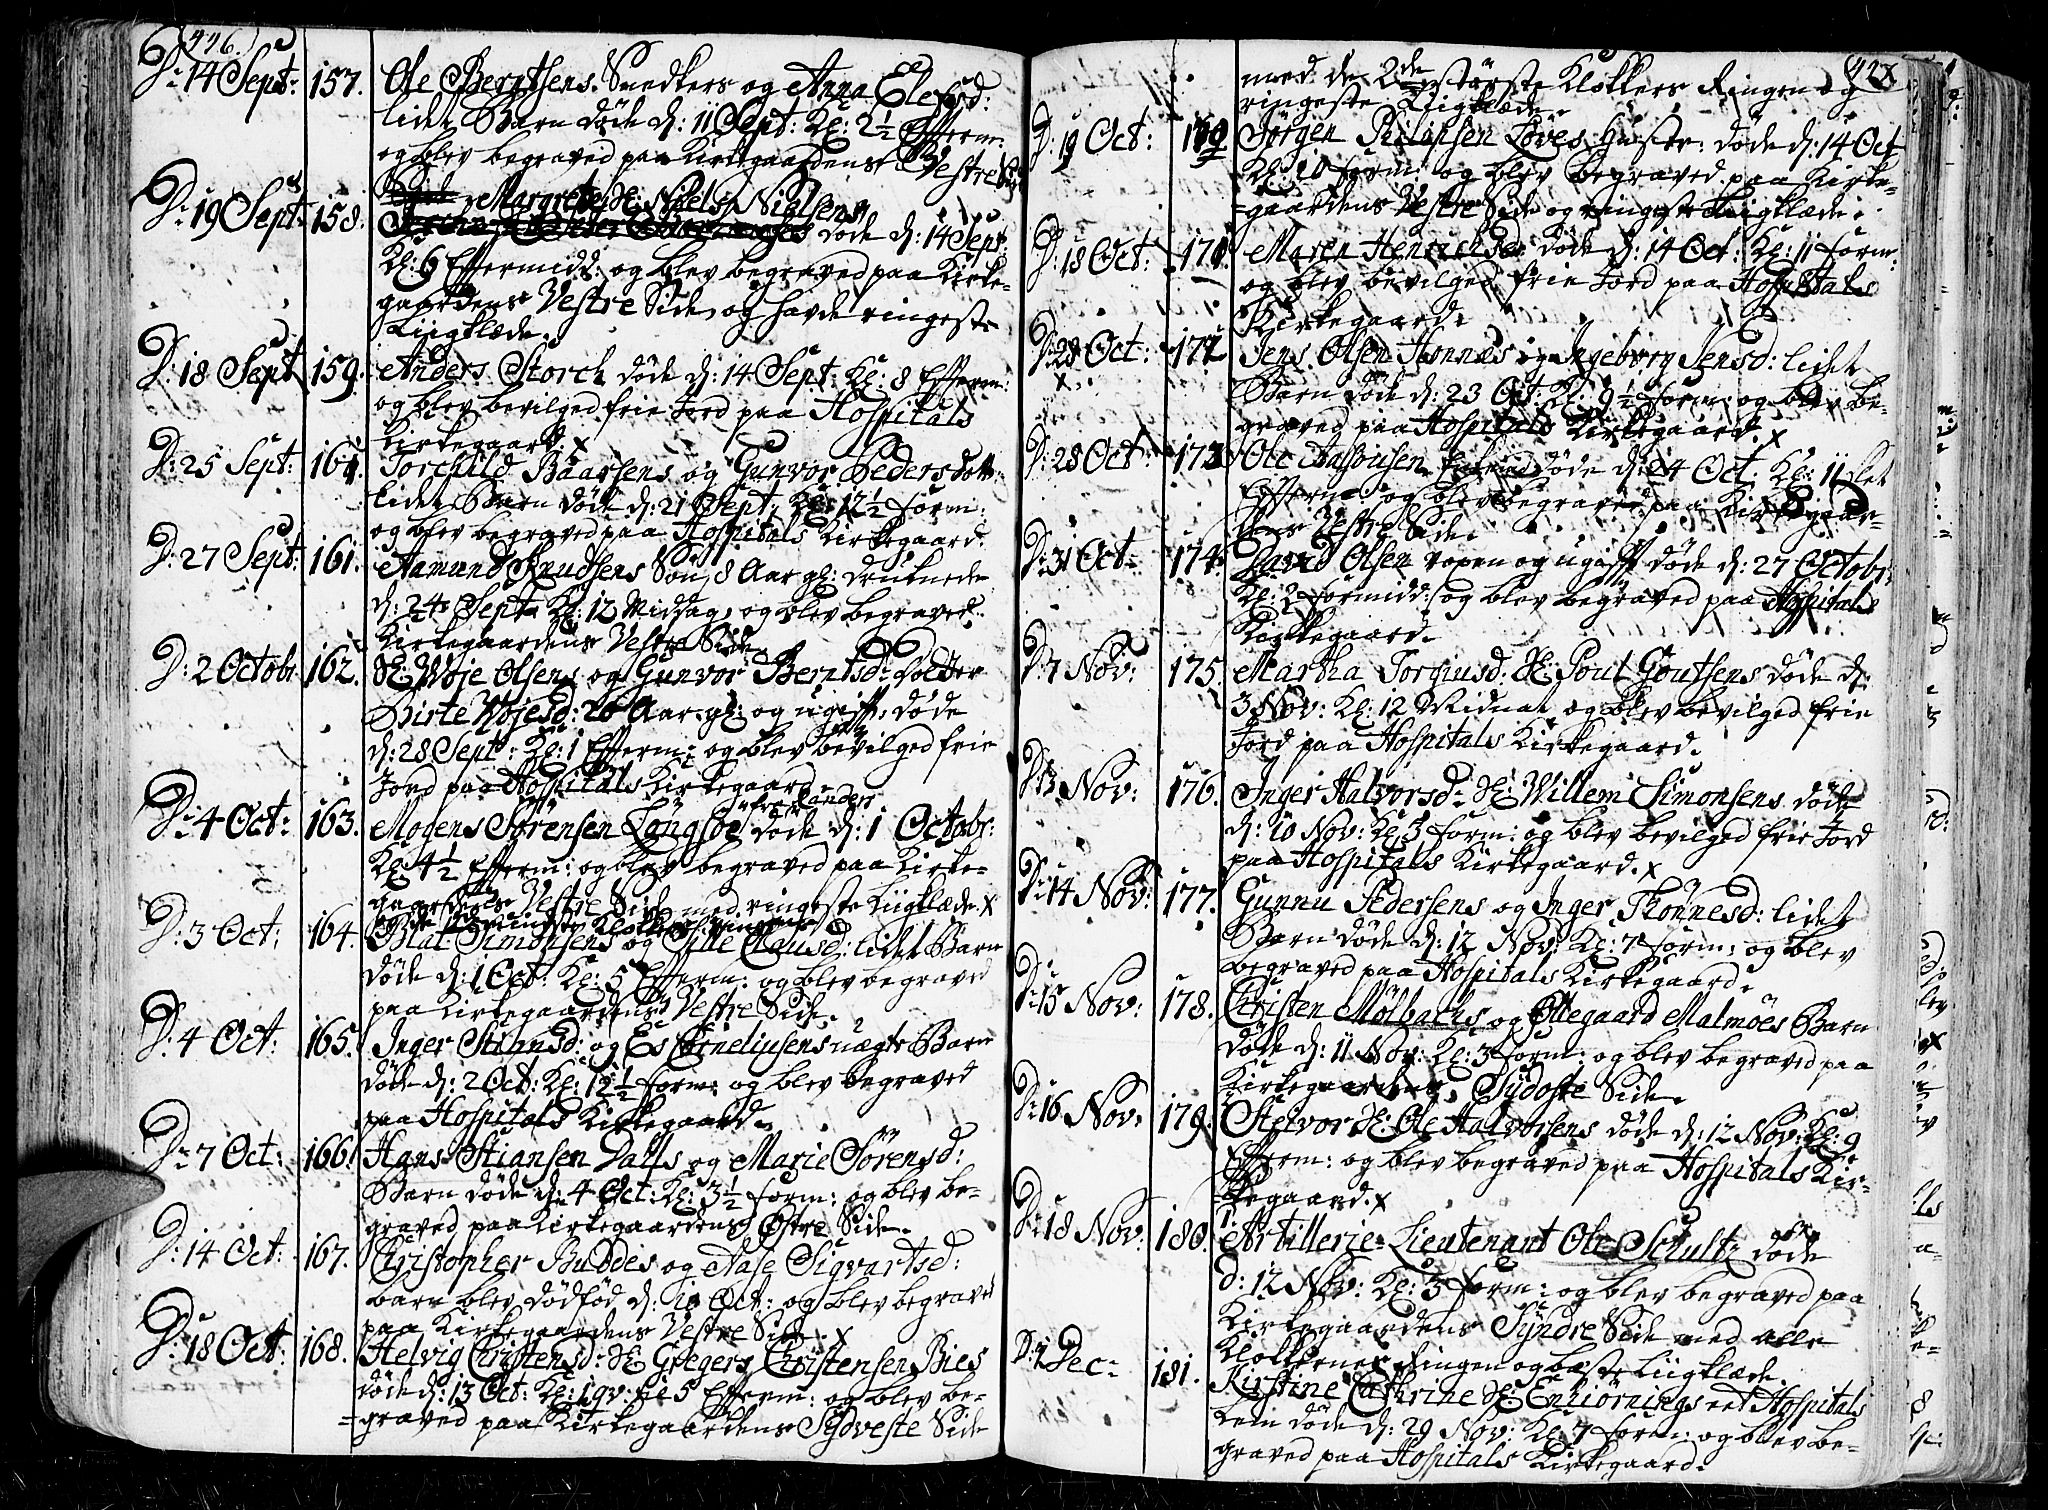 446.
D: 14 Sept: 157. Ole Berntsens Snedkers og Anna Elefsd:
lidet Barn døde d: 11 Sept: Kl: 2½ Efferm:
og blev begraved paa Kirkegaardens Vestre Side
D: 19 Sept: 158. Margrete Sl: Niels Nielsens
døde d: 14 Sept:
Kl: 6 Eftermidd: og blev begraved paa Kirke-
gaardens Vestre Side, og havde ringeste
Liigklæde.
D: 18 Sept 159. Anders Storch døde d: 14 Sept: Kl: 8 Efferm:
og blev bevilged frie Jord paa Hospitals
Kirkegaard x
D: 25 Sept: 160. Torchild Baarsens og Gunvor Peders Dott:
lidet Barn døde d: 21 Sept: Kl: 12½ form:
og blev begraved paa Hospitals Kirkegaard.
D: 27 Sept: 161. Aamund Knudsens Søn, 8 Aar gl: druknede
d: 24 Sept: Kl: 12 Middag, og blev begraved
Kirkegaardens Vestre Side.
D: 2 Octobr 162. Sl: Woje Olsens og Gunvor Berntsd: Dotter
Birte Wojesd: 20 Aar gl: og ugift, døde
d: 28 Sept: Kl: 1 Efferm: og blev bevilged frie
Jord paa Hospitals Kirkegaard
D: 4 Oct: 163. Mogens Sørensen Langsøe fra Randers døde d: 1 Octobr:
Kl: 4½ Efferm: og blev begraved paa Kirke-
gaardens Vestre Side med ringeste Liigklæde. x
og de mindste Klokkers ringen
D: 3 Oct: 164. Simonsens og Sille Clausd: lidet Barn
døde d: 1 Oct: Kl: 5 Efferm: og blev begraved
paa Kirkegaardens Vestre Side.
D: 4 Oct: 165. Inger Stiansd: og Es Corneliusens uægte Barn
døde d: 2 Oct: Kl: 12½ form: og blev begraved
paa Hospitals Kirkegaard.
D: 7 Oct: 166. Hans Stiansen Dalls og Marie Sørensd:
Barn døde d: 4 Oct: Kl: 3½ form: og blev be-
graved paa Kirkegaardens Østre Side.
D: 14 Oct: 167. Christopher Buddes og Aase Sigvartsd:
barn blev dødfød d: 10 Oct: og blev begraved
paa Kirkegaardens Vestre Side. x
D: 18 Oct: 168. Helvig Christensd: Sl: Gregers Christensen Bies
døde d: 13 Oct: Kl: 1 qv: til 5 Efferm: og blev be-
graved paa Kirkegaardens Sydveste Side
447
med de 2de største Klokkers Ringen og
ringeste Liigklæde.
D: 19 Oct: 169 Jørgen Philipsen Løves Hustr: døde d: 14 Oct
Kl: 10 form: og blev begraved paa Kirke-
gaardens Vestre Side og ringeste Liigklæde.
D: 18 Oct: 170. Maren Henrichsd: døde d: 14 Oct: Kl: 11 form:
og blev bevilged frie Jord paa Hospitals
Kirkegaard.
D: 28 Oct: 171 Jens Olsen Hannæs og Ingeborg Jensd: lidet
Barn døde d: 23 Oct: Kl: 9½ form: og blev be-
graved paa Hospitals Kirkegaard. x
D: 28 Oct: 173 Ole døde d: 24 Oct: Kl: 11 slet
Efferm: og blev begraved paa Kirkegaar-
dens Vestre Side.
D: 31 Oct: 174. David Olsen voxen og ugift døde d: 27 Octobr:
Kl: 2 formidd: og blev begraved paa Hospitals
Kirkegaard.
D: 7 Nov: 175. Martha Torjusd: Sl: Poul Goutsens døde d:
3 Nov: Kl: 12 Midnat og blev bevilged frie
Jord paa Hospitals Kirkegaard.
D: 13 Nov: 176. Inger Halvorsd: Sl: Willem Simonsens døde
d: 10 Nov: Kl: 5 form: og blev bevilged frie Jord
paa Hospitals Kirkegaard. x
D: 14 Nov: 177. Gunnu Pedersens og Inger Thønnesd: lidet
Barn døde d: 12 Nov: Kl: 7 form: og blev
begraved paa Hospitals Kirkegaard.
D: 15 Nov: 178. Christen Mølbachs og Ollegaard Malmøes Barn
døde d: 11 Nov: Kl: 3 form: og blev begraved paa
Kirkegaardens Sydoste Side.
D: 16 Nov: 179. Stelvor Sl: Ole Halvorsens døde d: 12 Nov: Kl: 9
Efferm: og blev begraved paa Hospitals Kir-
kegaard. x
D: 18 Nov: 180. Artillerie-Lieutenant Ole Schultz døde
d: 12 Nov: Kl: 3 form: og blev begraved paa
Kirkegaardens Syndre Side med alle
Klokkernes Ringen og beste Liigklæde.
D: 1 Dec: 181. Kirstine Cathrine Sl: Enhiørnings et Hospitals
Lem døde d: 29 Nov: Kl: 7 form: og blev be-
graved paa Hospitals Kirkegaard.